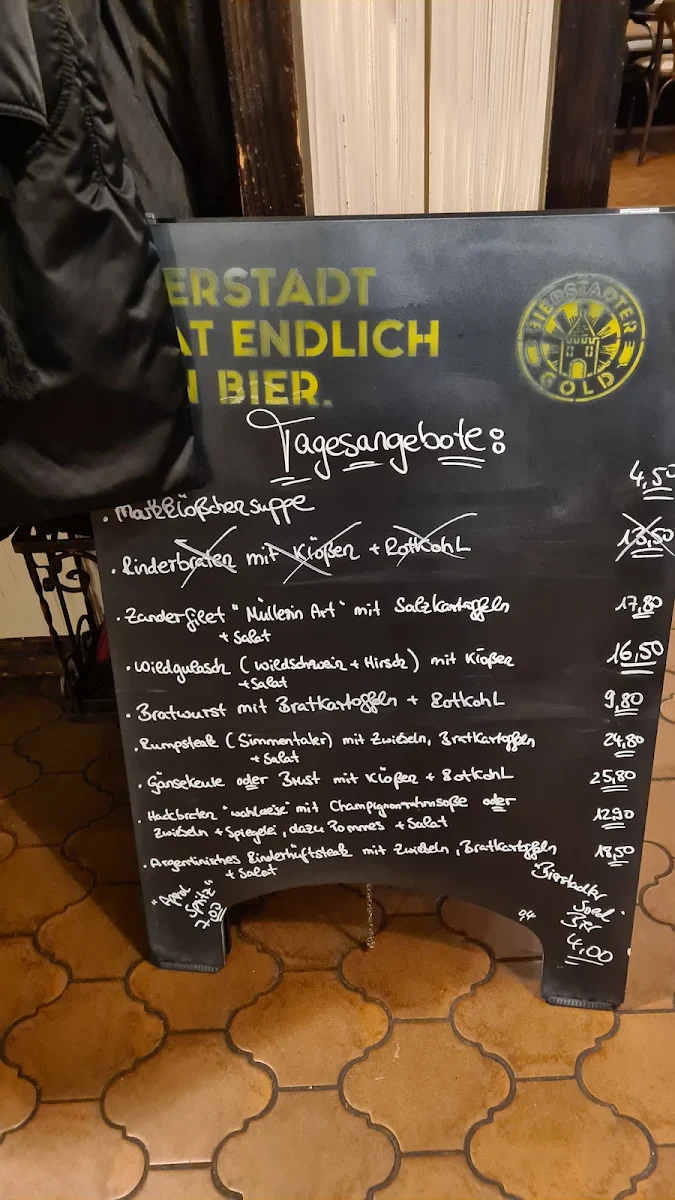 ERSTADT
AT ENDLICH
N BIER.
BIERSTADTER
GOLD
Tagesangebote:
· Markklößchensuppe 4,50
· Rinderbraten mit Klößen + Rotkohl 13,50
· Zanderfilet "Müllerin Art" mit Salzkartoffeln 17,80
+ Salat
· Wildgulasch (Wildschwein + Hirsch) mit Klößen 16,50
+ Salat
· Bratwurst mit Bratkartoffeln + Rotkohl 9,80
· Rumpsteak (Simmentaler) mit Zwiebeln, Bratkartoffeln 24,80
+ Salat
· Gänsekeule oder Brust mit Klößen + Rotkohl 25,80
· Hackbraten "wahlweise" mit Champignonrahmsoße oder
Zwiebeln + Spiegelei, dazu Pommes + Salat 12,90
· Argentinisches Rinderhüftsteak mit Zwiebeln, Bratkartoffeln 18,50
+ Salat
"Aperol
Spritz"
7,00
"Bierstadter
Bier
4,00